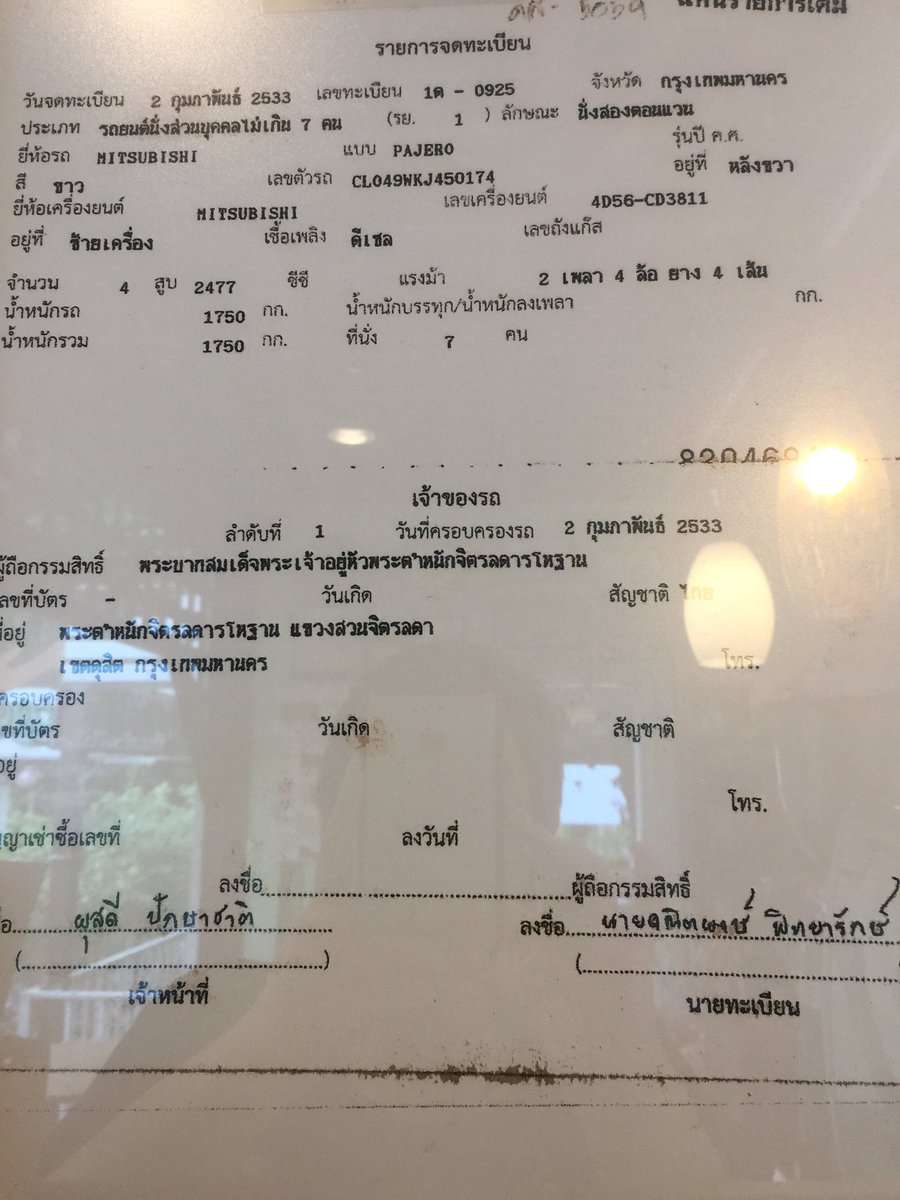 แผ่นรายการเดิม
รายการจดทะเบียน
วันจดทะเบียน 2 กุมภาพันธ์ 2533 เลขทะเบียน 1ด - 0925 จังหวัด กรุงเทพมหานคร
ประเภท รถยนต์นั่งส่วนบุคคลไม่เกิน 7 คน (รย. 1 ) ลักษณะ นั่งสองตอนแวน
ยี่ห้อรถ MITSUBISHI แบบ PAJERO รุ่นปี ค.ศ.
สี ขาว เลขตัวรถ CL049WKJ450174 อยู่ที่ หลังขวา
ยี่ห้อเครื่องยนต์ MITSUBISHI เลขเครื่องยนต์ 4D56-CD3811
อยู่ที่ ซ้ายเครื่อง เชื้อเพลิง ดีเซล เลขถังแก๊ส
จำนวน 4 สูบ 2477 ซีซี แรงม้า 2 เพลา 4 ล้อ ยาง 4 เส้น
น้ำหนักรถ 1750 กก. น้ำหนักบรรทุก/น้ำหนักลงเพลา กก.
น้ำหนักรวม 1750 กก. ที่นั่ง 7 คน
เจ้าของรถ
ลำดับที่ 1 วันที่ครอบครองรถ 2 กุมภาพันธ์ 2533
ผู้ถือกรรมสิทธิ์ พระบาทสมเด็จพระเจ้าอยู่หัวพระตำหนักจิตรลดารโหฐาน
เลขที่บัตร - วันเกิด สัญชาติ ไทย
ที่อยู่ พระตำหนักจิตรลดารโหฐาน แขวงสวนจิตรลดา
เขตดุสิต กรุงเทพมหานคร โทร.
ครอบครอง
ขที่บัตร วันเกิด สัญชาติ
อยู่
โทร.
ญาเช่าซื้อเลขที่ ลงวันที่
ลงชื่อ ผู้ถือกรรมสิทธิ์
ผุสดี ปักษาชาติ ลงชื่อ นาย พิทยารักษ์
( ) (
เจ้าหน้าที่ นายทะเบียน